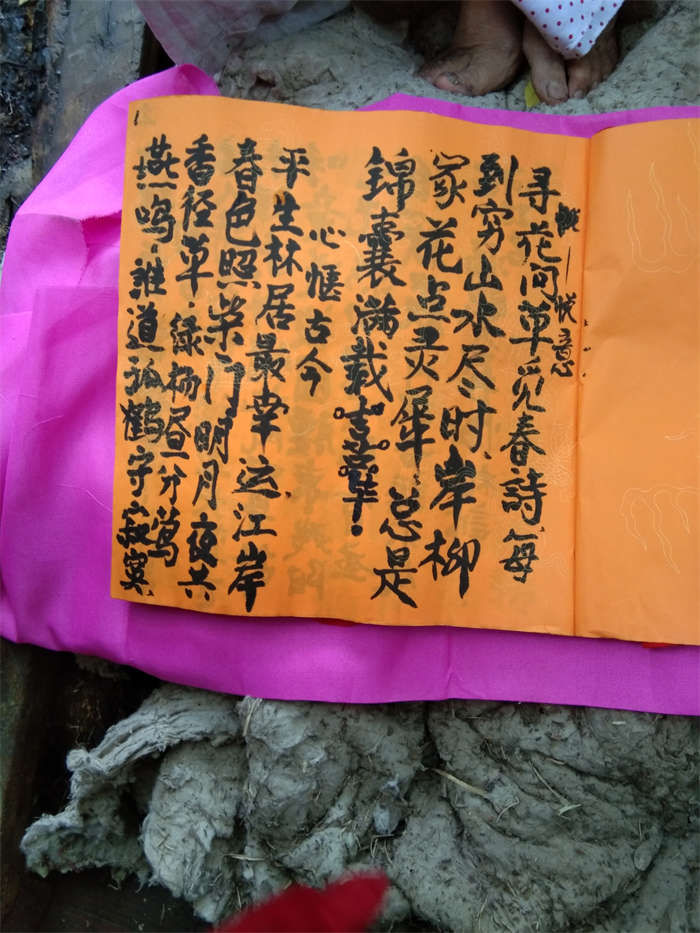 一悦意
寻花问草觅春詩.每
到穷山水尽时.岸柳
冢花点灵犀.总是
錦囊满载
心惬古今
平生林居最幸运江岸
春色照柴门明月夜共
香径草.绿杨昼分莺
燕鸣.谁道孤鹤守寂寞.